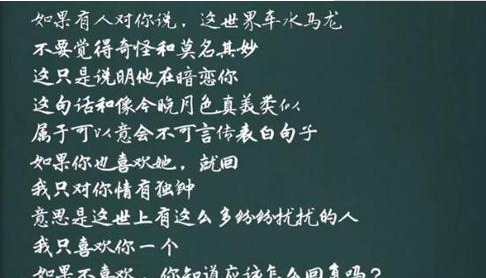 如果有人对你说，这世界车水马龙
不要觉得奇怪和莫名其妙
这只是说明他在暗恋你
这句话和像今晚月色真美类似
属于可以意会不可言传表白句子
如果你也喜欢她，就回
我只对你情有独钟
意思是这世上有这么多纷纷扰扰的人
我只喜欢你一个
如果不喜欢，你知道应该怎么回真吗？